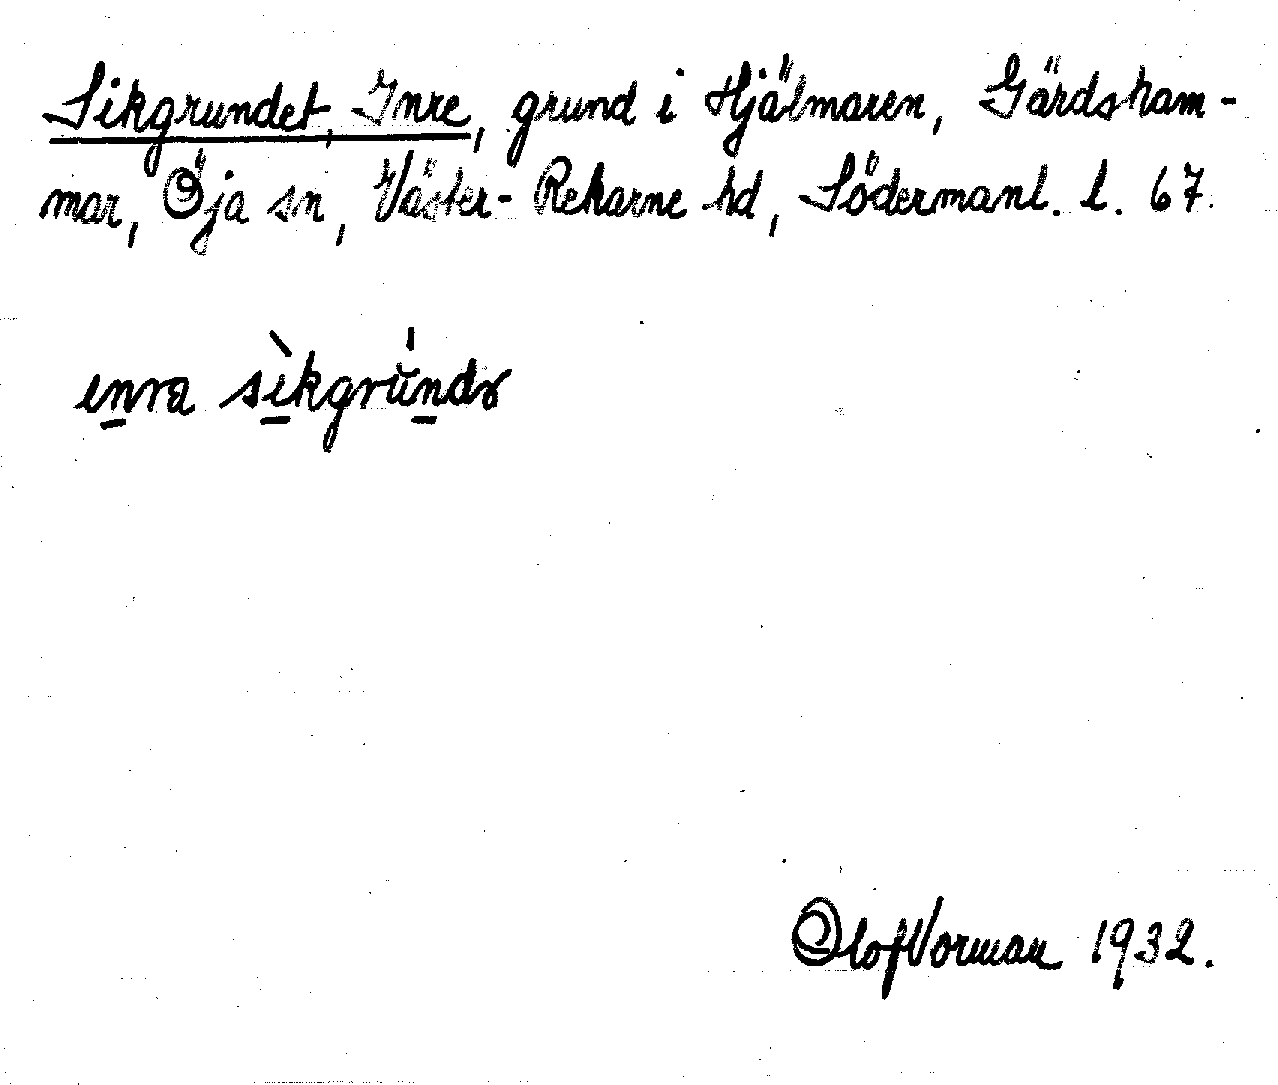 Sikgrundet, Inre, grund i Hjälmaren, Gärdsham-
mar, Öja sn, Väster-Rekarne hd, Södermanl. l. 67.
enra sìkgrŭndɤ
Olof Vorman 1932.